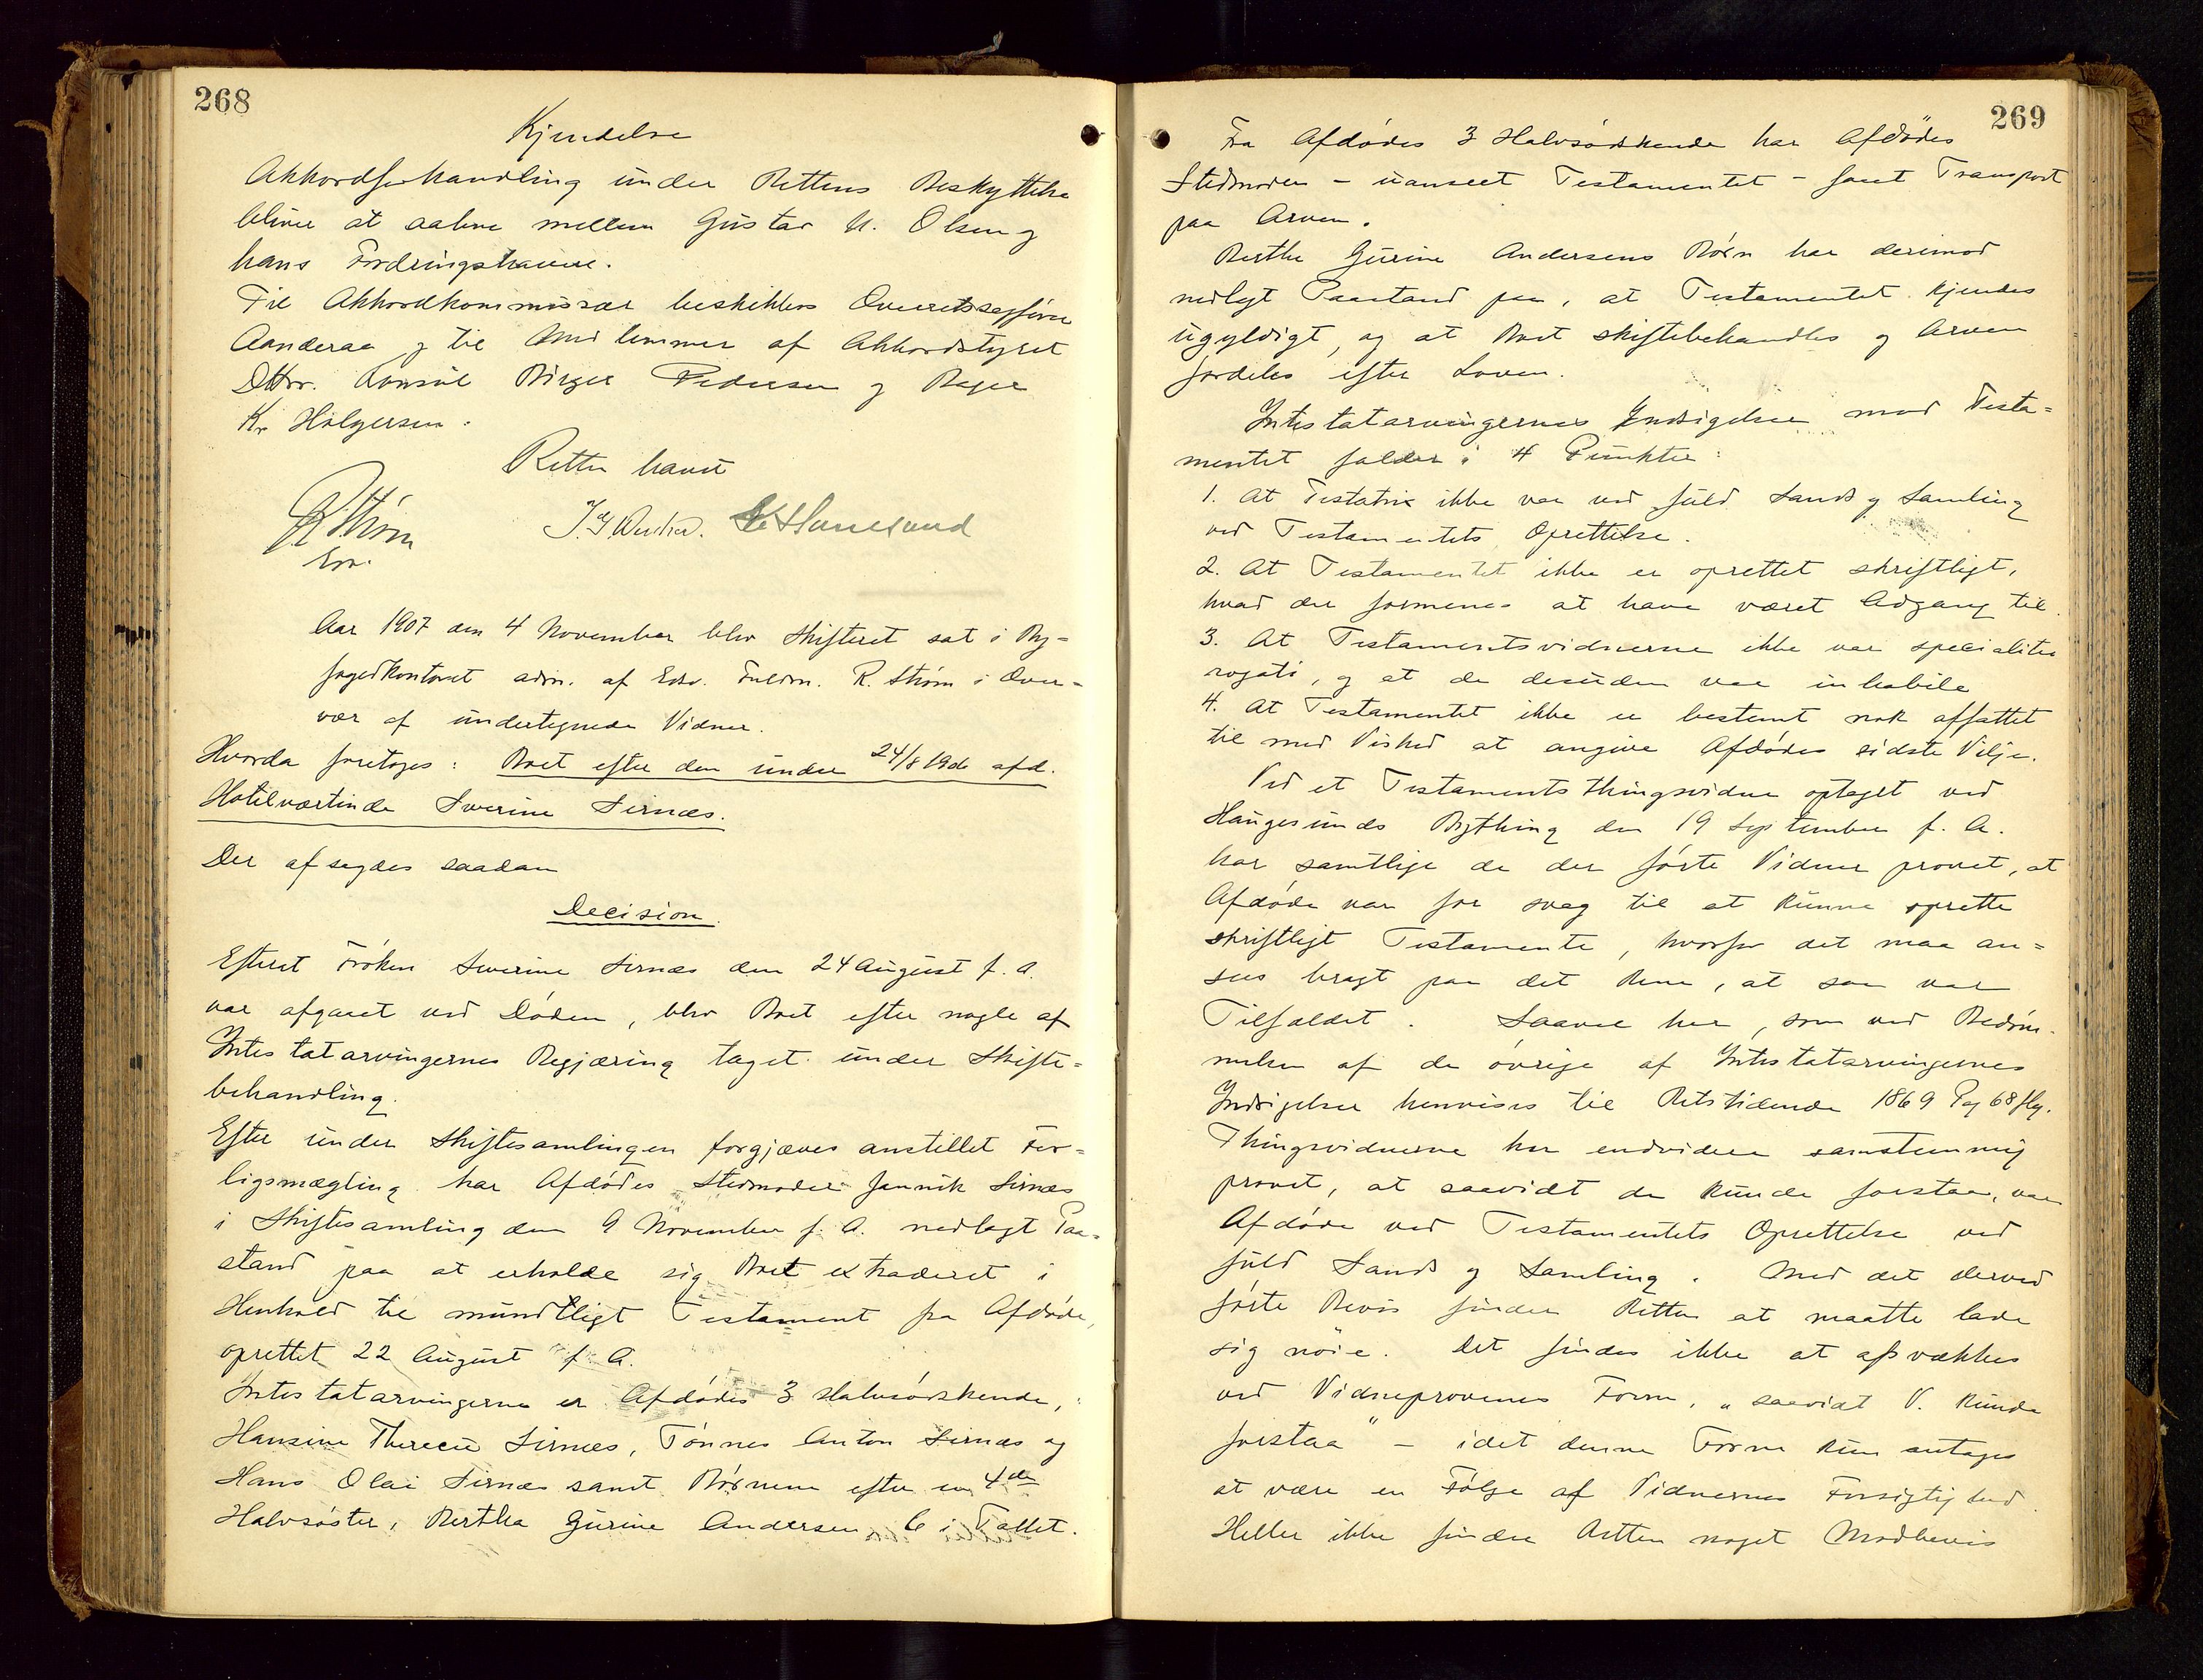 268
Kjendelse
Akkordforhandling under Rettens Beskyttelse
bliver at aabne mellem Gustav N. Olsen og
hans Fordringshavere.
Til Akkordkommissær beskikkes Overretssagfører
Aanderaa og til Medlemmer af Akkordstyret
DHrr. Konsul Birger Pedersen og Bager
Kr Holgersen.
Retten hævet
R Strøm
Edv.
Aar 1907 den 4 November blev Skifteret sat i By-
fogedkontoret adm. af Edv. Fuldm. R. Strøm i Over-
vær af undertegnede Vidner.
Hvorda foretoges: Boet efter den under 24/8 1906 afd.
Hotelværtinde Severine Sirnæs.
Der afsagdes saadan
Decision.
Efterat Frøken Severine Sirnæs den 24 August f. A.
var afgaaet ved Døden, blev Boet efter nogle af
Intestatarvingernes Begjæring taget under Skifte-
behandling.
Efter under Skiftesamlingen forgjæves anstillet For-
ligsmægling har Afdødes Stedmoder Jannik Sirnæs
i Skiftesamling den 9 November f. A. nedlagt Paa-
stand paa at erholde sig Boet extraderet i
Henhold til mundtligt Testament fra Afdøde,
oprettet 22 August f. A.
Intestatarvingerne er Afdødes 3 Halvsødskende,
Hansine Therecie Sirnæs, Tønnes Anton Sirnæs og
Hans Olai Sirnæs samt Børnene efter en 4de
Halvsøster, Bertha Gurine Andersen, 6 i Tallet.
269
Fra Afdødes 3 Halvsødskende har Afdødes
Stedmoder – uanseet Testamentet – faaet Transport
paa Arven.
Berthe Gurine Andersens Børn har derimod
nedlagt Paastand paa, at Testamentet kjendes
ugyldigt, og at Boet skiftebehandles og Arven
fordeles efter Loven.
Intestatarvingernes Indsigelser mod Testa-
mentet falder i 4 Punkter:
1. At Testatrix ikke var ved fuld Sands og Samling
ved Testamentets Oprettelse.
2. At Testamentet ikke er oprettet skriftligt,
hvad der formenes at have været Adgang til.
3. At Testamentsvidnerne ikke var specialiter
rogati, og at de desuden var inhabile
4. At Testamentet ikke er bestemt nok affattet
til med Vished at angive Afdødes sidste Vilje.
Ved et Testamentsthingsvidne optaget ved
Haugesunds Bything den 19 September f. A.
har samtlige de der førte Vidner provet, at
Afdøde var for svag til at kunne oprette
skriftligt Testamente, hvorfor det maa an-
sees bragt paa det Rene, at saa var
Tilfældet. Saavel her, som ved Bedøm-
melsen af de øvrige af Intestatarvingernes
Indsigelser henvises til Retstidende 1869 Pag 68 flg.
Thingsvidnerne har endvidere samstemmig
provet, at saavidt de kunde forstaa, var
Afdøde ved Testamentets Oprettelse ved
fuld Sands og Samling. Med det derved
førte Bevis finder Retten at maatte lade
sig nøie. Det findes ikke at afsvækkes
ved Vidneprovenes Form, „saavidt V. kunde
forstaa" – idet denne Form kun antages
at være en Følge af Vidnernes Forsigtighed.
Heller ikke finder Retten noget Modbevis